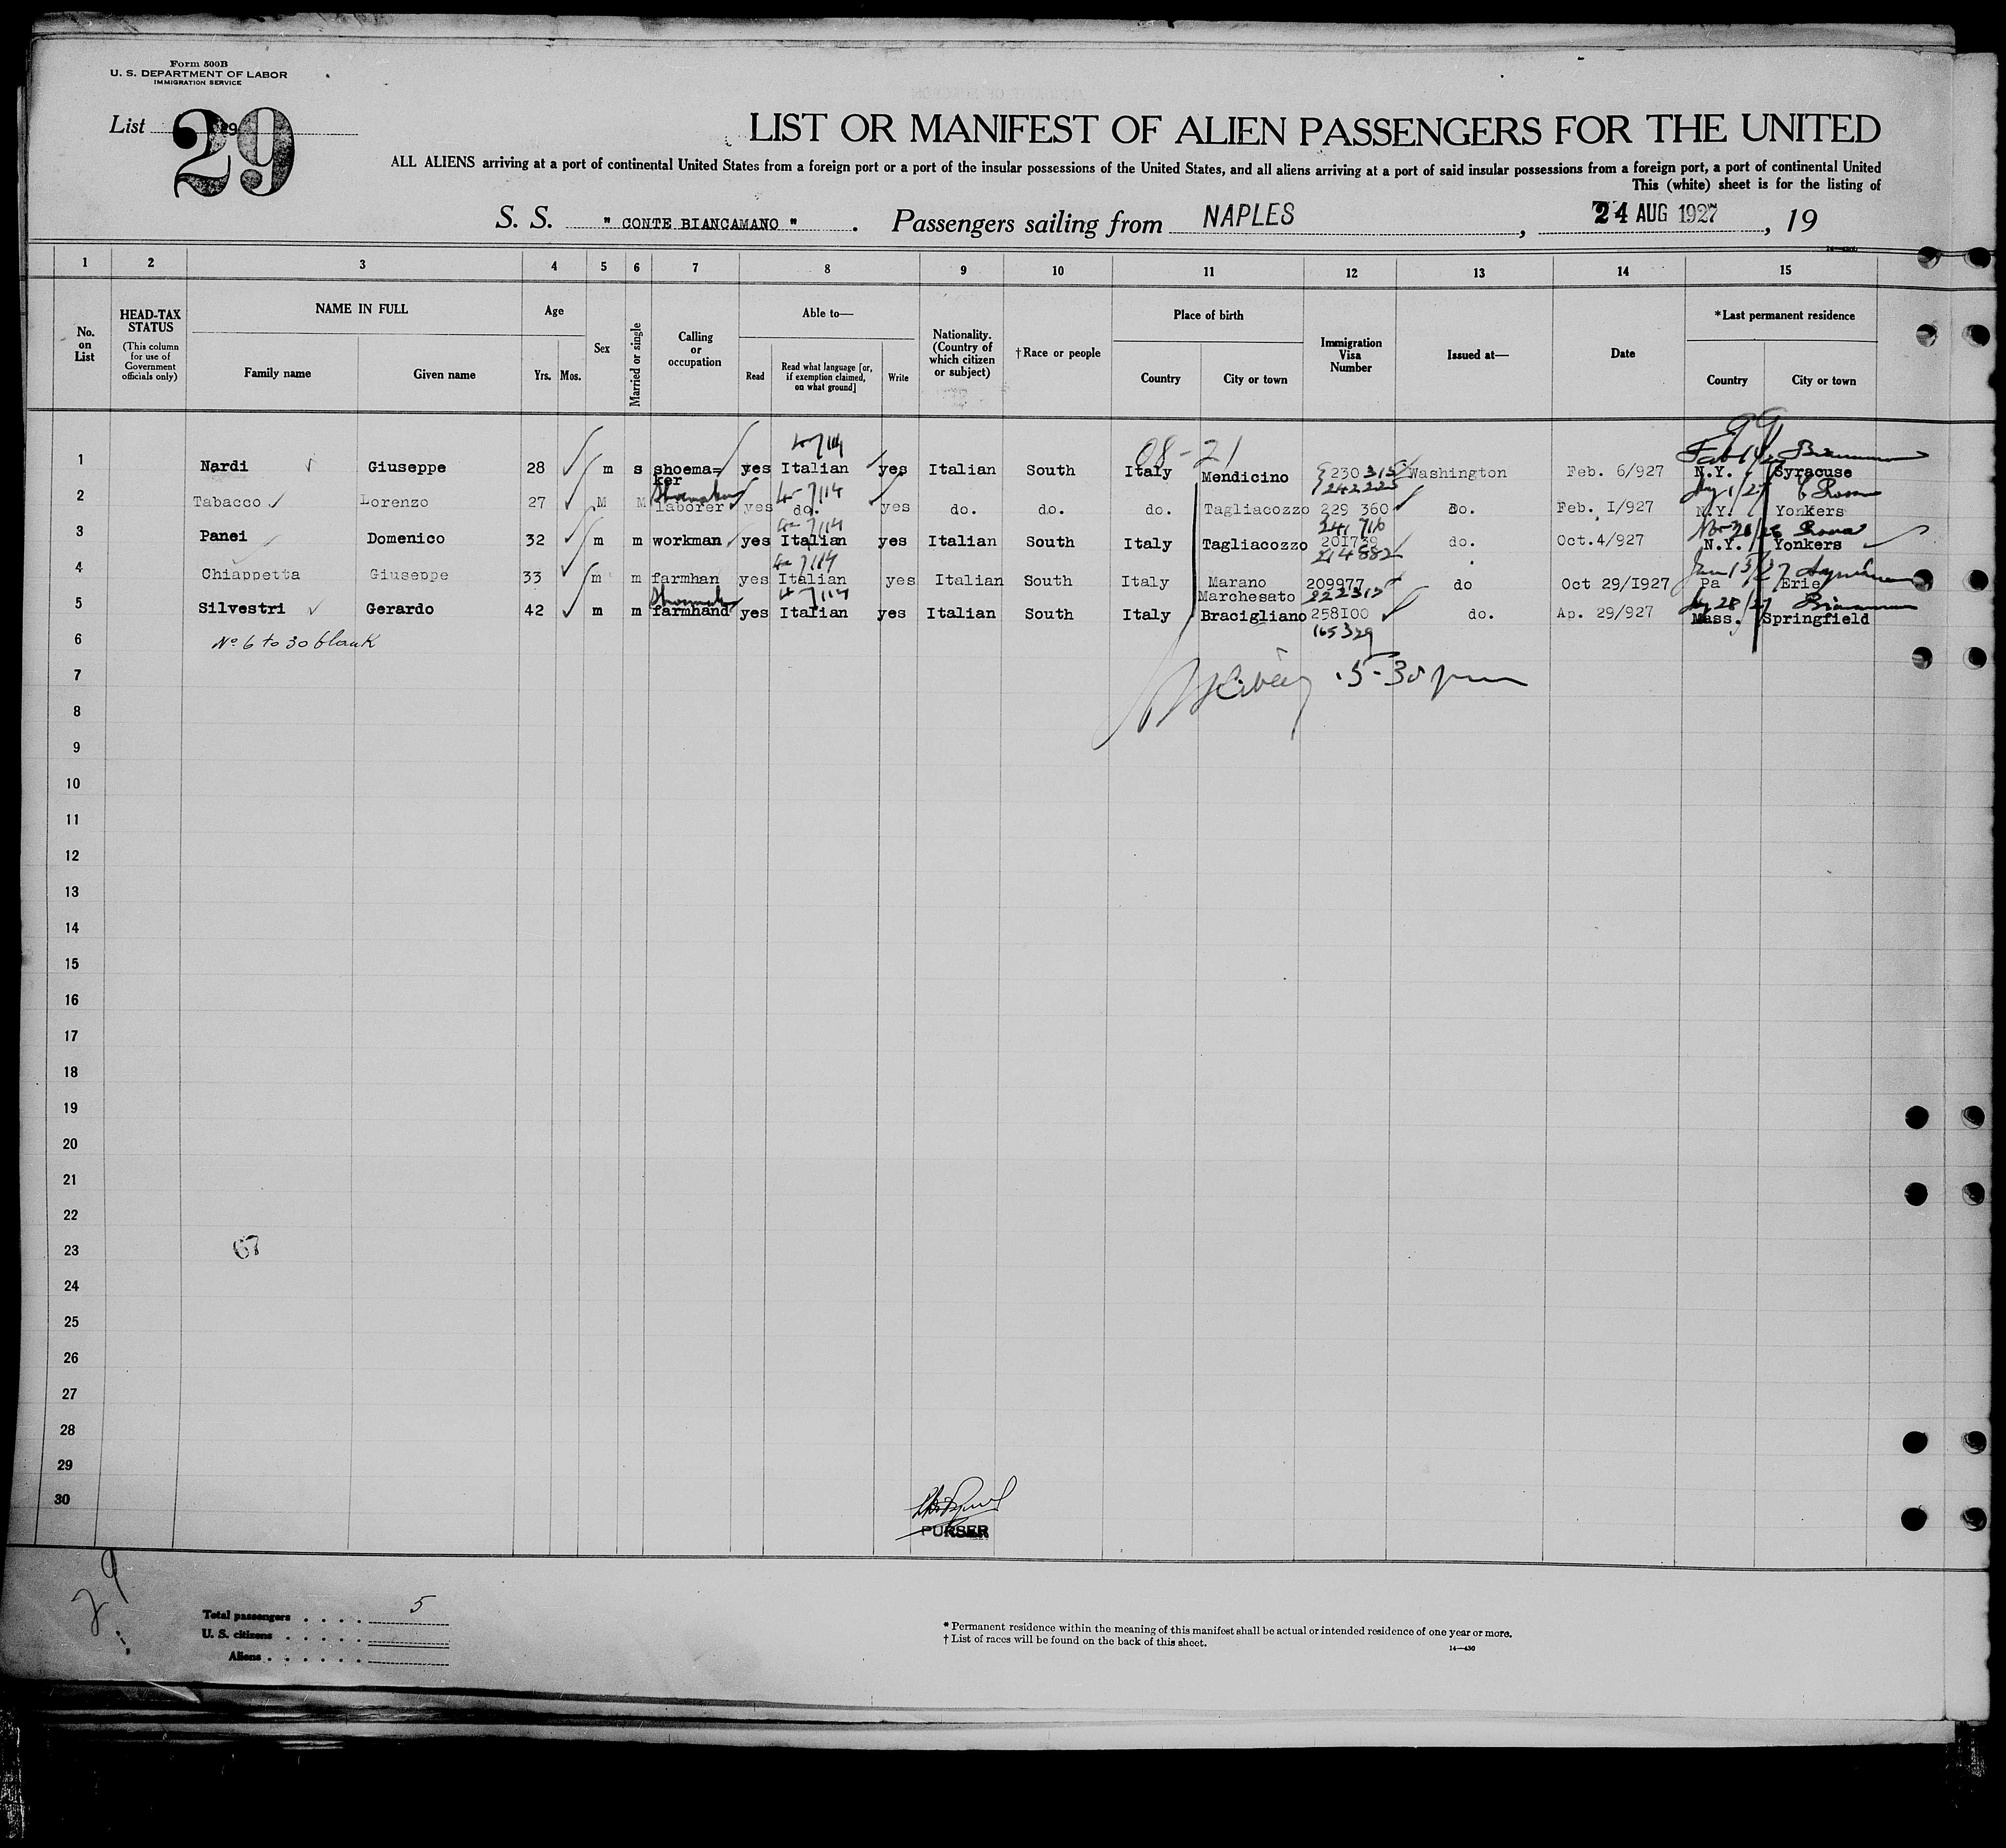 Form 500B
U. S. DEPARTMENT OF LABOR
IMMIGRATION SERVICE
List 29
29
LIST OR MANIFEST OF ALIEN PASSENGERS FOR THE UNITED
ALL ALIENS arriving at a port of continental United States from a foreign port or a port of the insular possessions of the United States, and all aliens arriving at a port of said insular possessions from a foreign port, a port of continental United
This (white) sheet is for the listing of
S. S. " CONTE BIANCAMANO " . Passengers sailing from NAPLES , 24 AUG 1927 , 19
1 2 3 4 5 6 7 8 9 10 11 12 13 14 15
No. on List
HEAD-TAX STATUS (This column for use of Government officials only)
NAME IN FULL
Family name Given name
Age
Yrs. Mos.
Sex
Married or single
Calling or occupation
Able to—
Read
Read what language [or, if exemption claimed, on what ground]
Write
Nationality. (Country of which citizen or subject)
†Race or people
Place of birth
Country City or town
Immigration Visa Number
Issued at—
Date
*Last permanent residence
Country City or town
99
08-21
1 Nardi Giuseppe 28 m s shoema=ker yes Italian yes Italian South Italy Mendicino 230315 Washington Feb. 6/927 N.Y. Syracuse
242225
2 Tabacco Lorenzo 27 M M laborer yes do. yes do. do. do. Tagliacozzo 229 360 do. Feb. I/927 N.Y. Yonkers
241 716
3 Panei Domenico 32 m m workman yes Italian yes Italian South Italy Tagliacozzo 201739 do. Oct.4/927 N.Y. Yonkers
214882
4 Chiappetta Giuseppe 33 m m farmhan yes Italian yes Italian South Italy Marano Marchesato 209977 do Oct 29/I927 Pa Erie
222315
5 Silvestri Gerardo 42 m m farmhand yes Italian yes Italian South Italy Bracigliano 258I00 do. Ap. 29/927 Mass. Springfield
165329
6 No 6 to 30 blank
7 5-30 pm
8
9
10
11
12
13
14
15
16
17
18
19
20
21
22
23 67
24
25
26
27
28
29
30
PURSER
29
Total passengers . . . . 5
U. S. citizens . . . . .
Aliens . . . . . .
* Permanent residence within the meaning of this manifest shall be actual or intended residence of one year or more.
† List of races will be found on the back of this sheet.
14—430